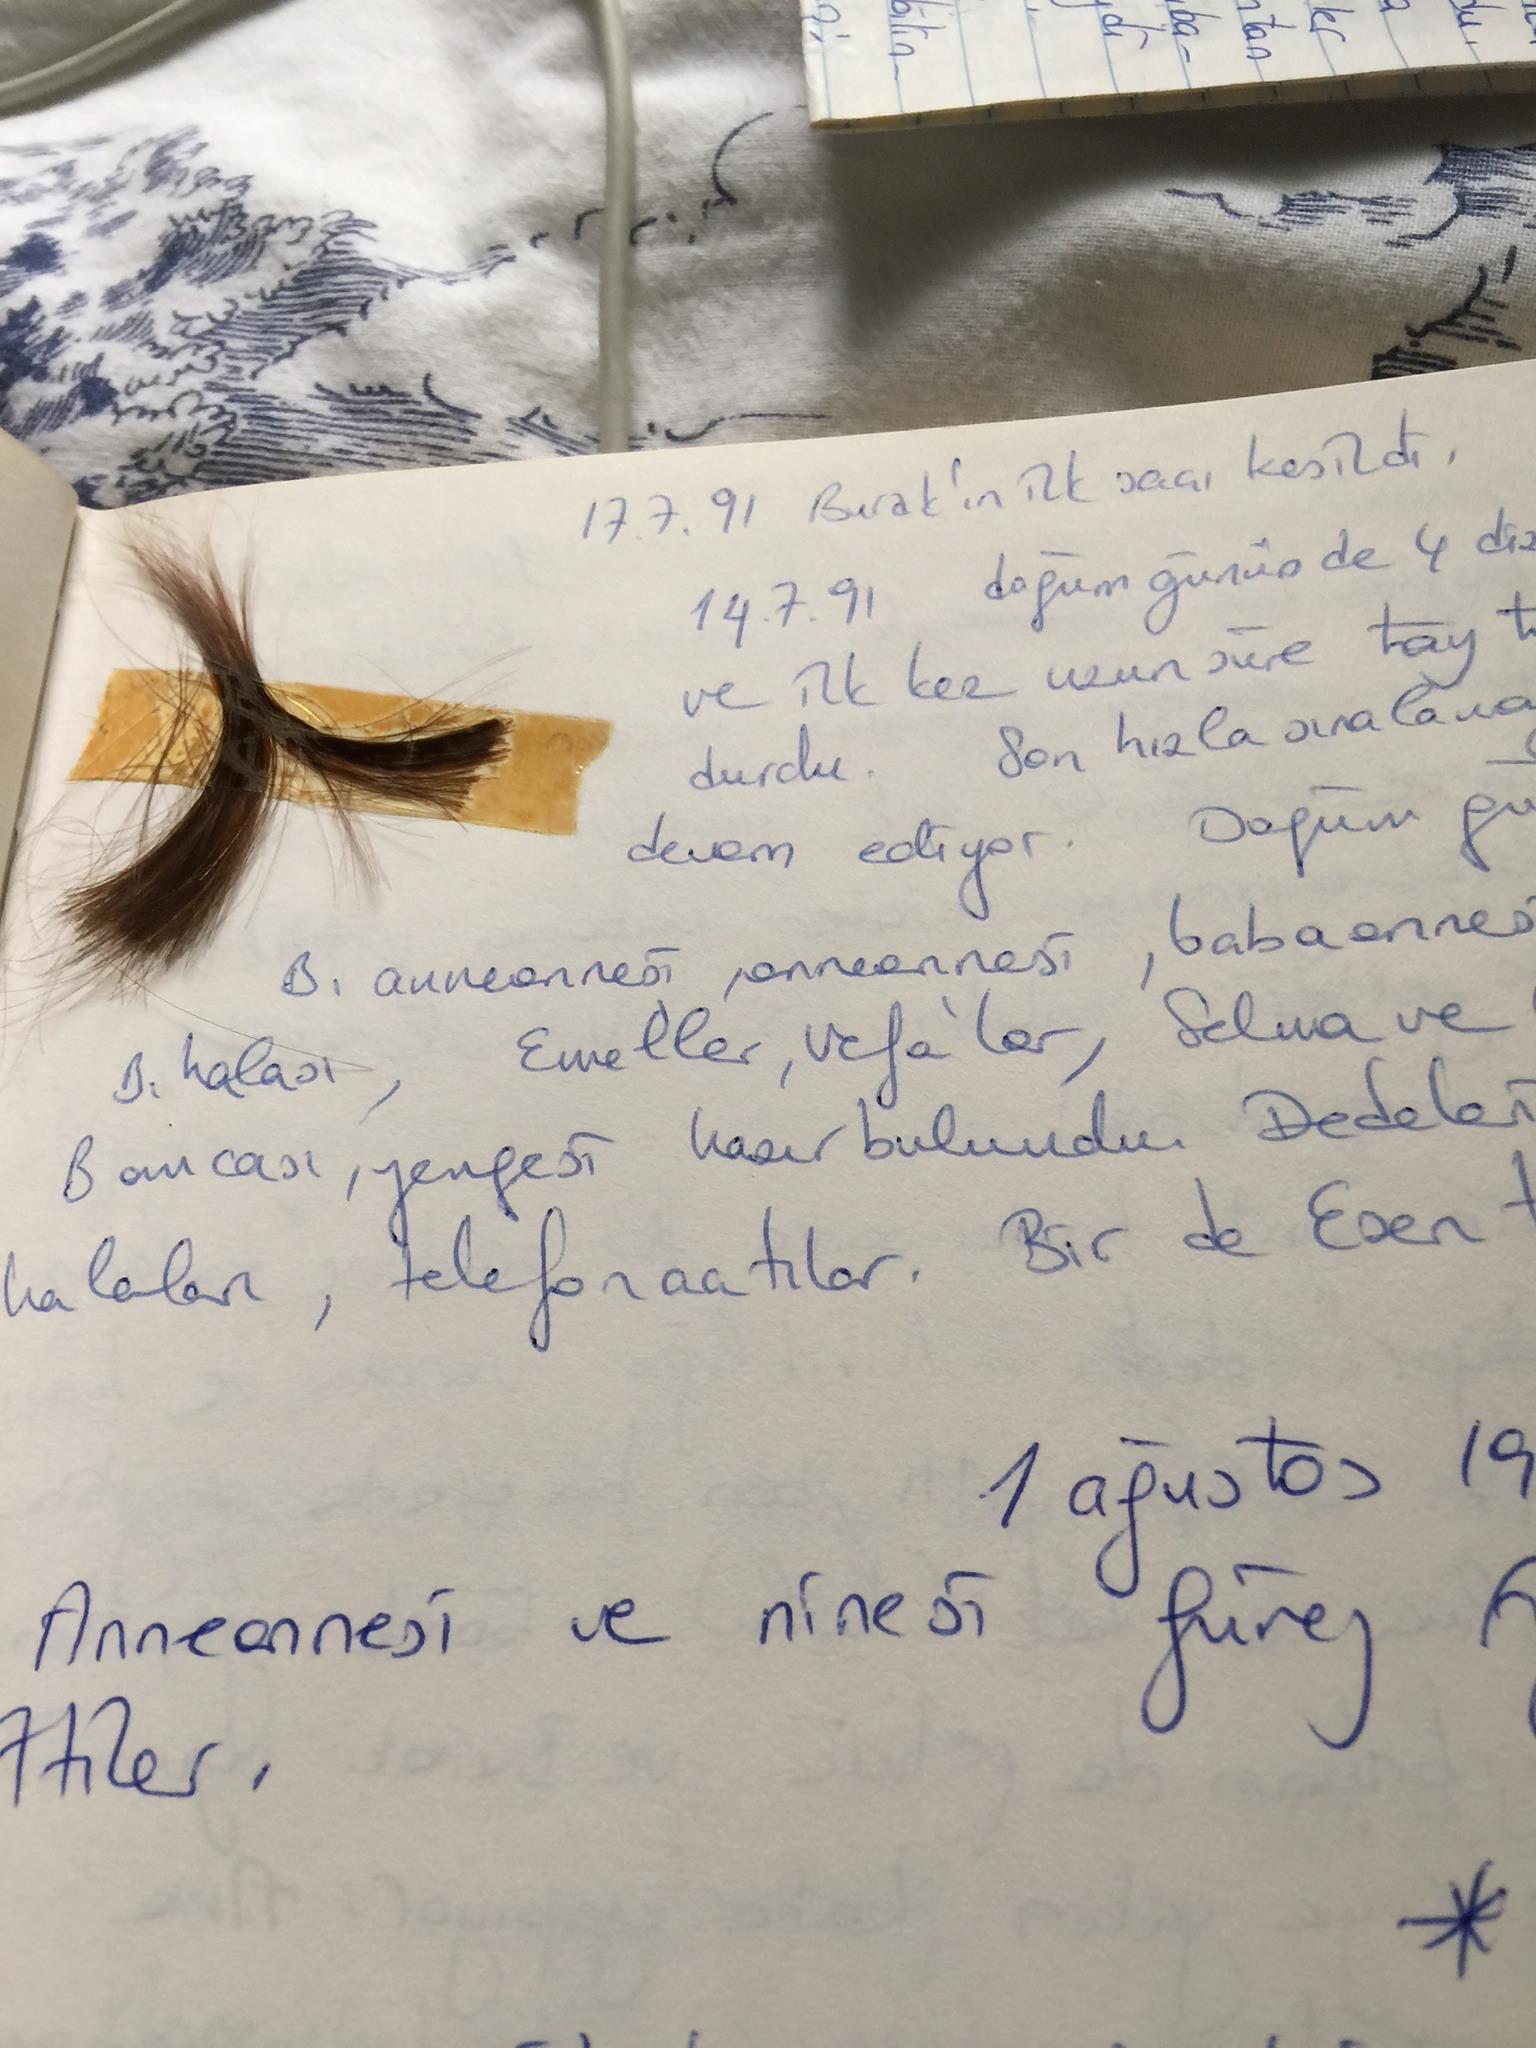 bitin-
ydı
ba-
ntan
ler
a
du.
17.7.91 Burak'ın ilk saçı kesildi.
14.7.91 doğum gününde 4 diz
ve ilk kez uzun süre tay t
durdu. Son hızla sıralamay
devam ediyor. Doğum gü
B. anneannesi, anneannesi, babaannesi
B. halası, Emeller, Vefa'lar, Selma ve
B amcası, yengesi hazır bulundu. Dedeleri
halaları, telefon açtılar. Bir de Esen t
1 ağustos 19
Anneannesi ve ninesi
ttiler.